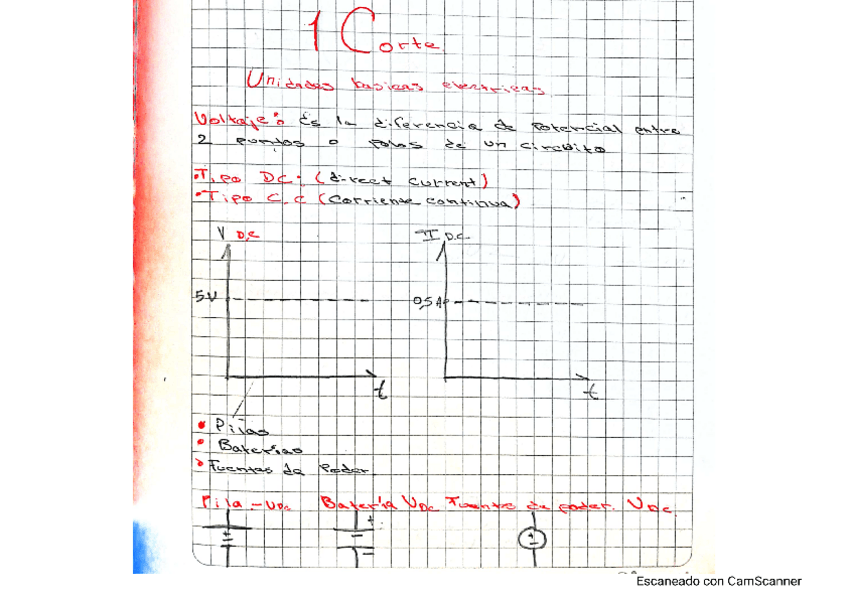 1 Corte
Unidades basicas electricas
Voltaje: es la diferencia de potencial entre
2 puntos o polos de un circuito
•Tipo DC: (direct current)
•Tipo C.C (Corriente continua)
V D.C
I D.C
5V
0,5A
t
t
• Pilas
• Baterias
• Fuentes de Poder
Pila - VDC Batería VDC Fuente de poder. VDC
Escaneado con CamScanner